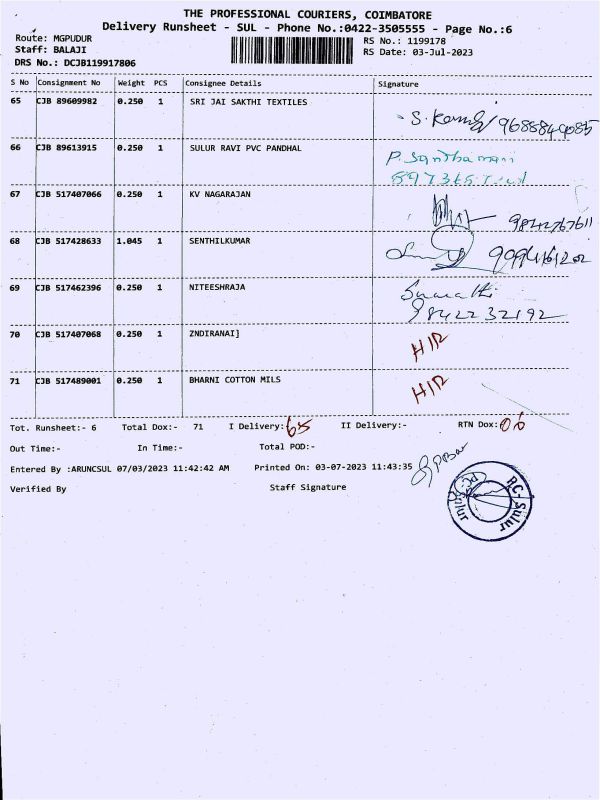 THE PROFESSIONAL COURIERS, COIMBATORE
Delivery Runsheet - SUL - Phone No.:0422-3505555 - Page No.:6
Route: MGPUDUR
RS No.: 1199178
Staff: BALAJI
RS Date: 03-Jul-2023
DRS No.: DCJB119917806
S No Consignment No Weight PCS Consignee Details Signature
65 CJB 89609982 0.250 1 SRI JAI SAKTHI TEXTILES
66 CJB 89613915 0.250 1 SULUR RAVI PVC PANDHAL
P. Santhamani
67 CJB 517407066 0.250 1 KV NAGARAJAN
9842767611
68 CJB 517428633 1.045 1 SENTHILKUMAR
69 CJB 517462396 0.250 1 NITEESHRAJA
9842232192
70 CJB 517407068 0.250 1 ZNDIRANAI]
71 CJB 517489001 0.250 1 BHARNI COTTON MILS
Tot. Runsheet:- 6 Total Dox:- 71 I Delivery:- 65 II Delivery:- RTN Dox:- 06
Out Time:- In Time:- Total POD:-
Entered By :ARUNCSUL 07/03/2023 11:42:42 AM Printed On: 03-07-2023 11:43:35
Verified By Staff Signature
RC-Sulur